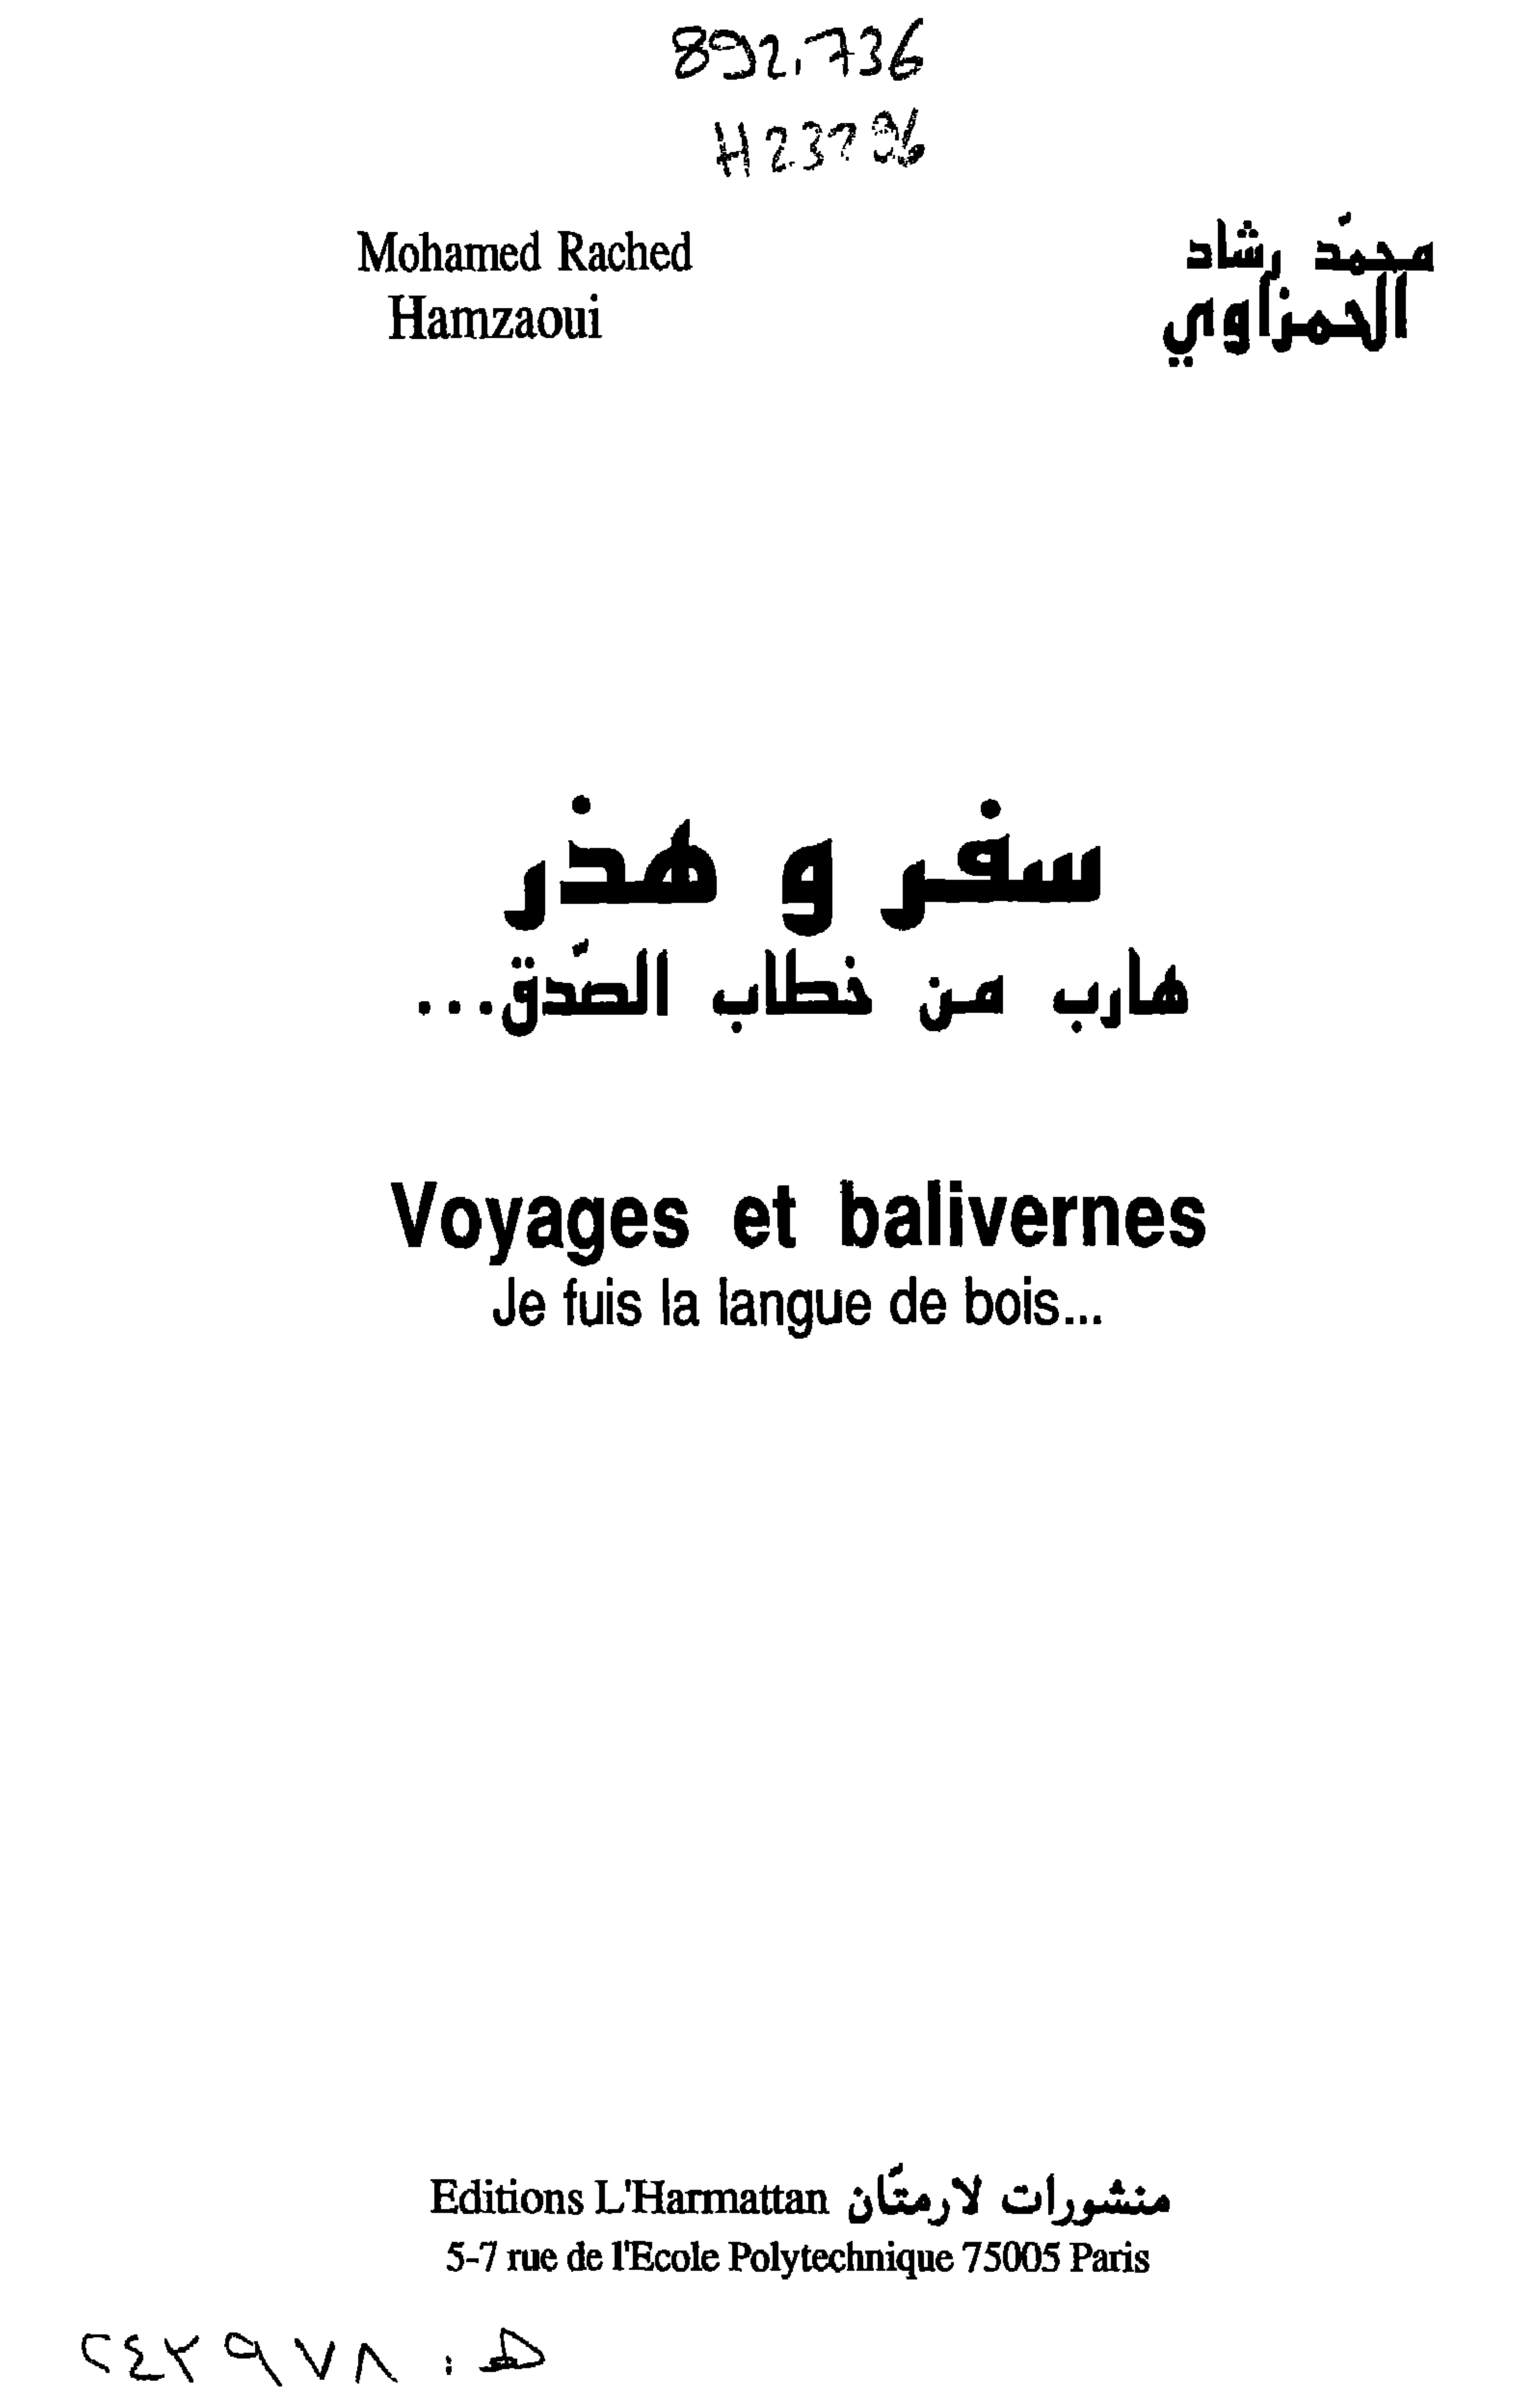 892.736
Mohamed Rached
Hamzaoui
محمّد رشاد
الحمزاوي
سفر و هذر
هارب من خطاب الصّدق...
Voyages et balivernes
Je fuis la langue de bois...
Editions L'Harmattan منشورات لارمتّان
5-7 rue de l'Ecole Polytechnique 75005 Paris